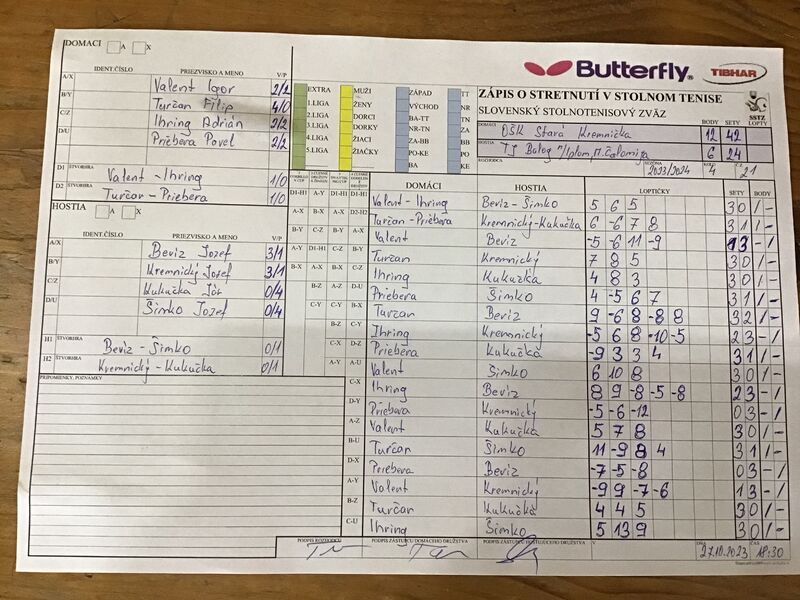 DOMACI A X
IDENT.ČÍSLO PRIEZVISKO A MENO V/P
A/X Valent Igor 2/2
B/Y Turčan Filip 4/0
C/Z Ihring Adrián 2/2
D/U Priebera Pavel 2/2
D1 ŠTVORHRA Valent - Ihring 1/0
D2 Turčan - Priebera 1/0
HOSTIA A X
IDENT.ČÍSLO PRIEZVISKO A MENO V/P
A/X Beviz Jozef 3/1
B/Y Kremnický Jozef 3/1
C/Z Kukučka Ján 0/4
D/U Šimko Jozef 0/4
H1 ŠTVORHRA Beviz - Šimko 0/1
H2 Kremnický - Kukučka 0/1
PRIPOMIENKY, POZNÁMKY
EXTRA MUŽI ZÁPAD TT
1.LIGA ŽENY VÝCHOD NR
2.LIGA DORCI BA-TT TN
3.LIGA DORKY NR-TN ZA
4.LIGA ŽIACI ZA-BB BB
5.LIGA ŽIAČKY PO-KE PO
BA KE
Butterfly TIBHAR
ZÁPIS O STRETNUTÍ V STOLNOM TENISE
SLOVENSKÝ STOLNOTENISOVÝ ZVÄZ
SSTZ
BODY SETY LOPTY
DOMÁCI OŠK Stará Kremnička 12 42
HOSTIA TJ Balog n/Ipľom, M. Čalomija 6 24
ROZHODCA SEZÓNA 2023/2024 KOLO 4 21
DOMÁCI HOSTIA LOPTIČKY SETY BODY
D1-H1 Valent - Ihring Beviz - Šimko 5 6 5 30 1/-
D2-H2 Turčan - Priebera Kremnický - Kukučka 6 -6 7 8 31 1/-
Valent Beviz -5 -6 11 -9 13 -/1
Turčan Kremnický 7 8 5 30 1/-
Ihring Kukučka 4 8 3 30 1/-
D-U Priebera Šimko 4 -5 6 7 31 1/-
B-X Turčan Beviz 9 -6 8 -8 8 32 1/-
C-Y Ihring Kremnický -5 6 8 -10 -5 23 -/1
D-Z Priebera Kukučka -9 3 3 4 31 1/-
A-U Valent Šimko 6 10 8 30 1/-
C-X Ihring Beviz 8 9 -8 -5 -8 23 -/1
D-Y Priebera Kremnický -5 -6 -12 03 -/1
A-Z Valent Kukučka 5 7 8 30 1/-
B-U Turčan Šimko 11 -9 8 4 31 1/-
D-X Priebera Beviz -7 -5 -8 03 -/1
A-Y Valent Kremnický -9 9 -7 -6 13 -/1
B-Z Turčan Kukučka 4 4 5 30 1/-
C-U Ihring Šimko 5 13 9 30 1/-
PODPIS ROZHODCU PODPIS ZÁSTUPCU DOMÁCEHO DRUŽSTVA PODPIS ZÁSTUPCU HOSŤUJÚCEHO DRUŽSTVA V DŇA 27.10.2023 ČAS 18:30